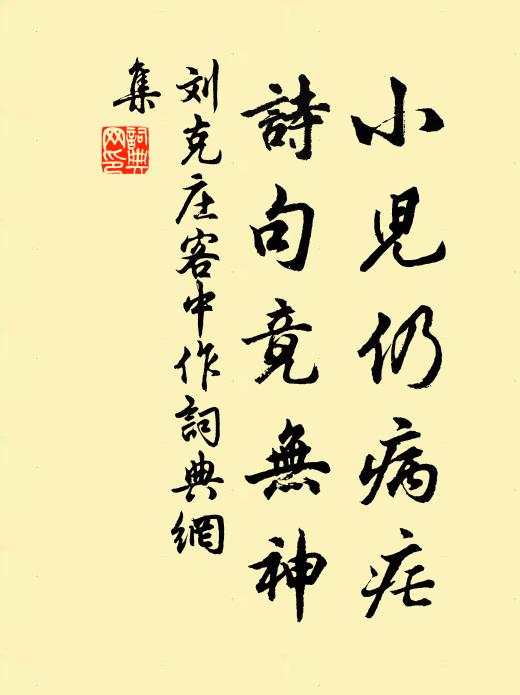 小兒仍病疟
詩句竟無神
刘克庄客中作詞典網
集
詞典網印